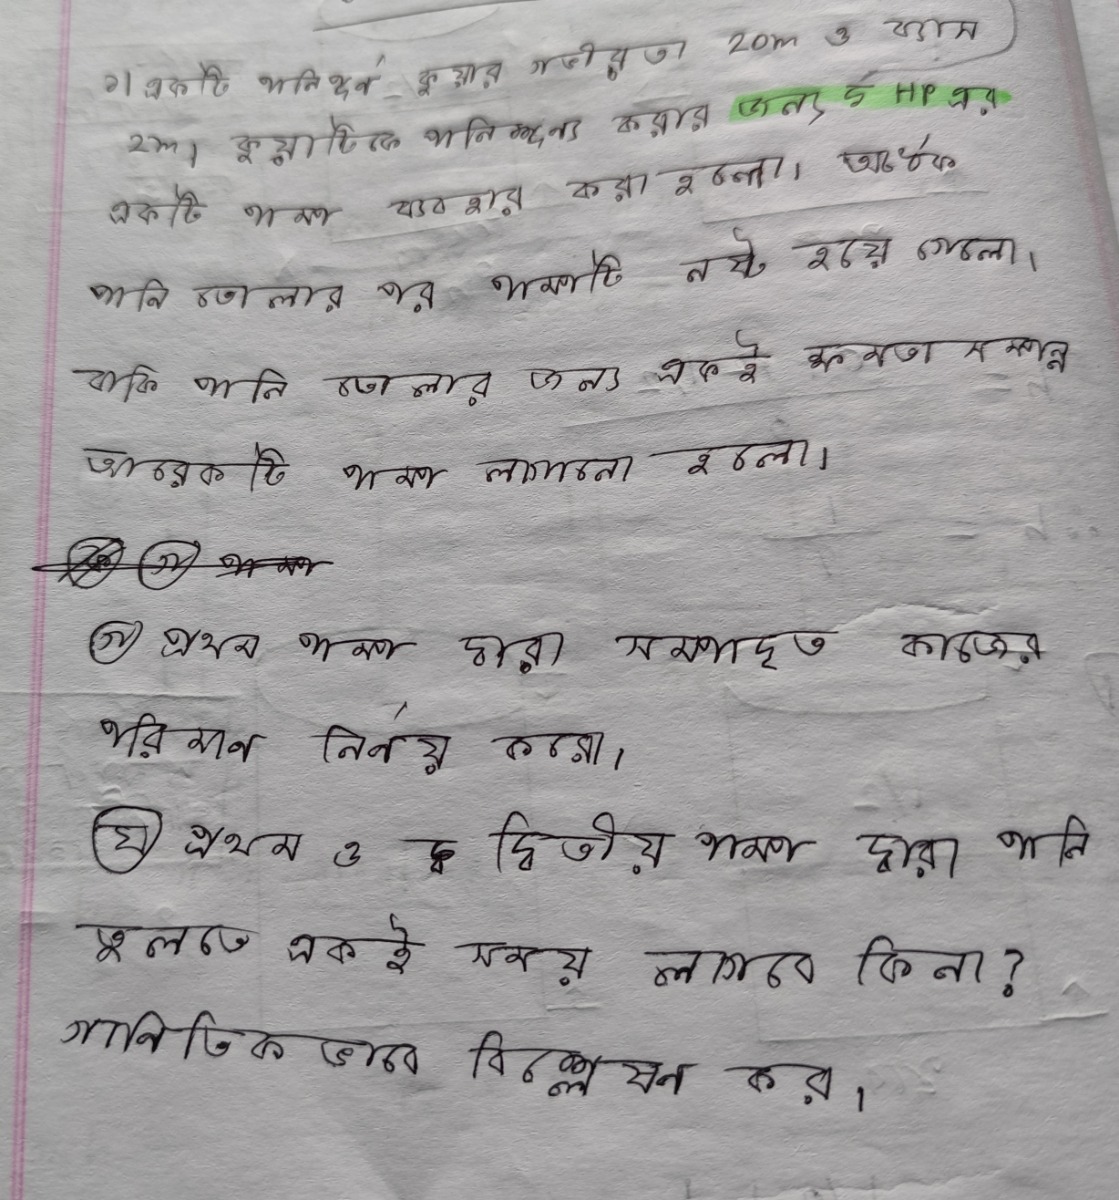 ২। একটি পানিপূর্ন কুয়ার গভীরতা 20m ও ব্যাস
2m। কুয়াটিকে পানিশূন্য করার জন্য ৮ HP এর
একটি পাম্প ব্যবহার করা হলো। অর্ধেক
পানি তোলার পর পাম্পটি নষ্ট হয়ে গেলো।
বাকি পানি তোলার জন্য একই ক্ষমতা সম্পন্ন
আরেকটি পাম্প লাগানো হলো।
গ) প্রথম পাম্প দ্বারা সম্পাদৃত কাজের
পরিমান নির্নয় করো।
ঘ) প্রথম ও দ্বিতীয় পাম্প দ্বারা পানি
তুলতে একই সময় লাগবে কিনা?
গানিতিকভাবে বিশ্লেষন কর।